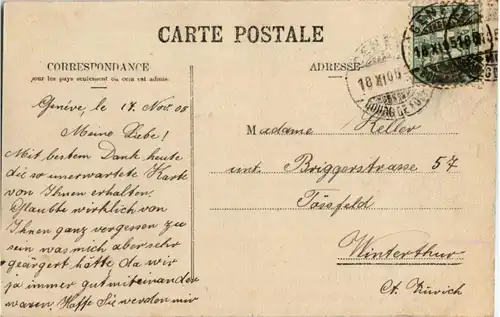 CARTE POSTALE
CORRESPONDANCE
pour les pays seulement où cela est admis.
ADRESSE
Genève, le 17. Nov. 08
Meine Liebe!
Mit bestem Dank heute
die so unerwartete Karte
von Ihnen erhalten.
Glaubte wirklich von
Ihnen ganz vergessen zu
sein was mich aber sehr
geärgert hätte, da wir
ja immer gut miteinander
waren. Hoffe Sie werden mir
Madame Keller
unt. Briggerstrasse 57
Tössfeld
Winterthur
Ct. Zürich